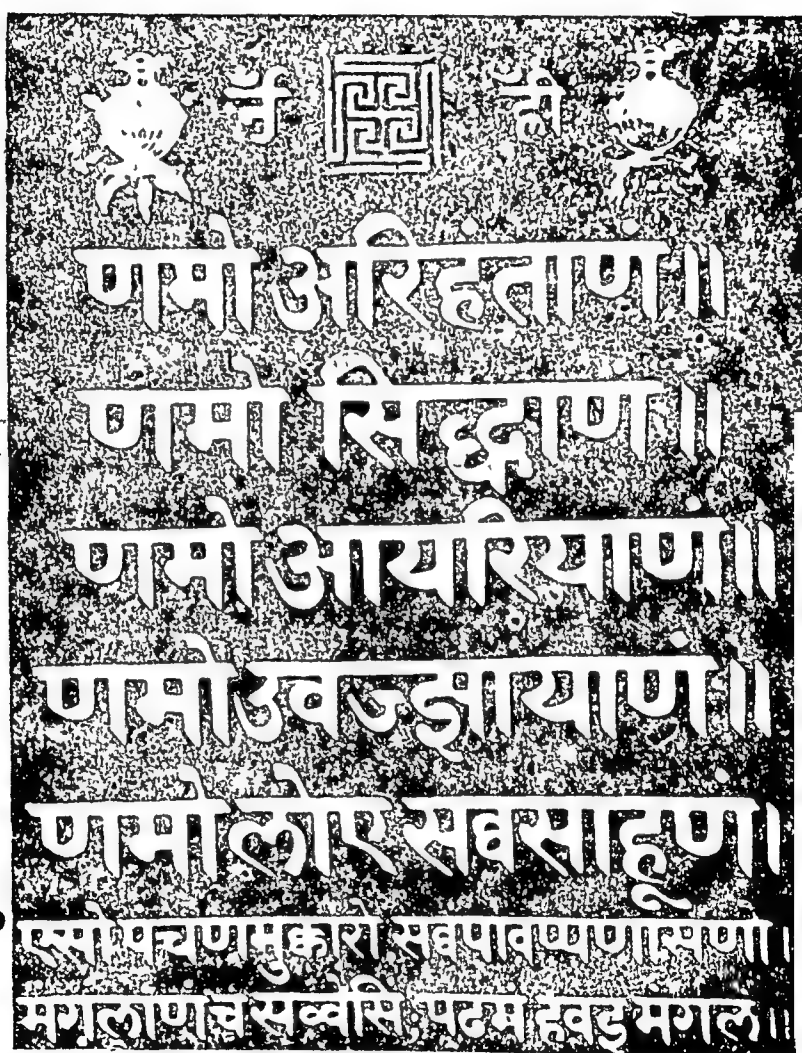 ॐ ह्रीँ
णमो अरिहंताणं॥
णमो सिद्धाणं॥
णमो आयरियाणं॥
णमो उवज्झायाणं॥
णमो लोए सव्वसाहूणं।
एसो पंच णमुक्कारो सव्वपावप्पणासणो।
मंगलाणं च सव्वेसिं पढमं हवइ मंगलं॥